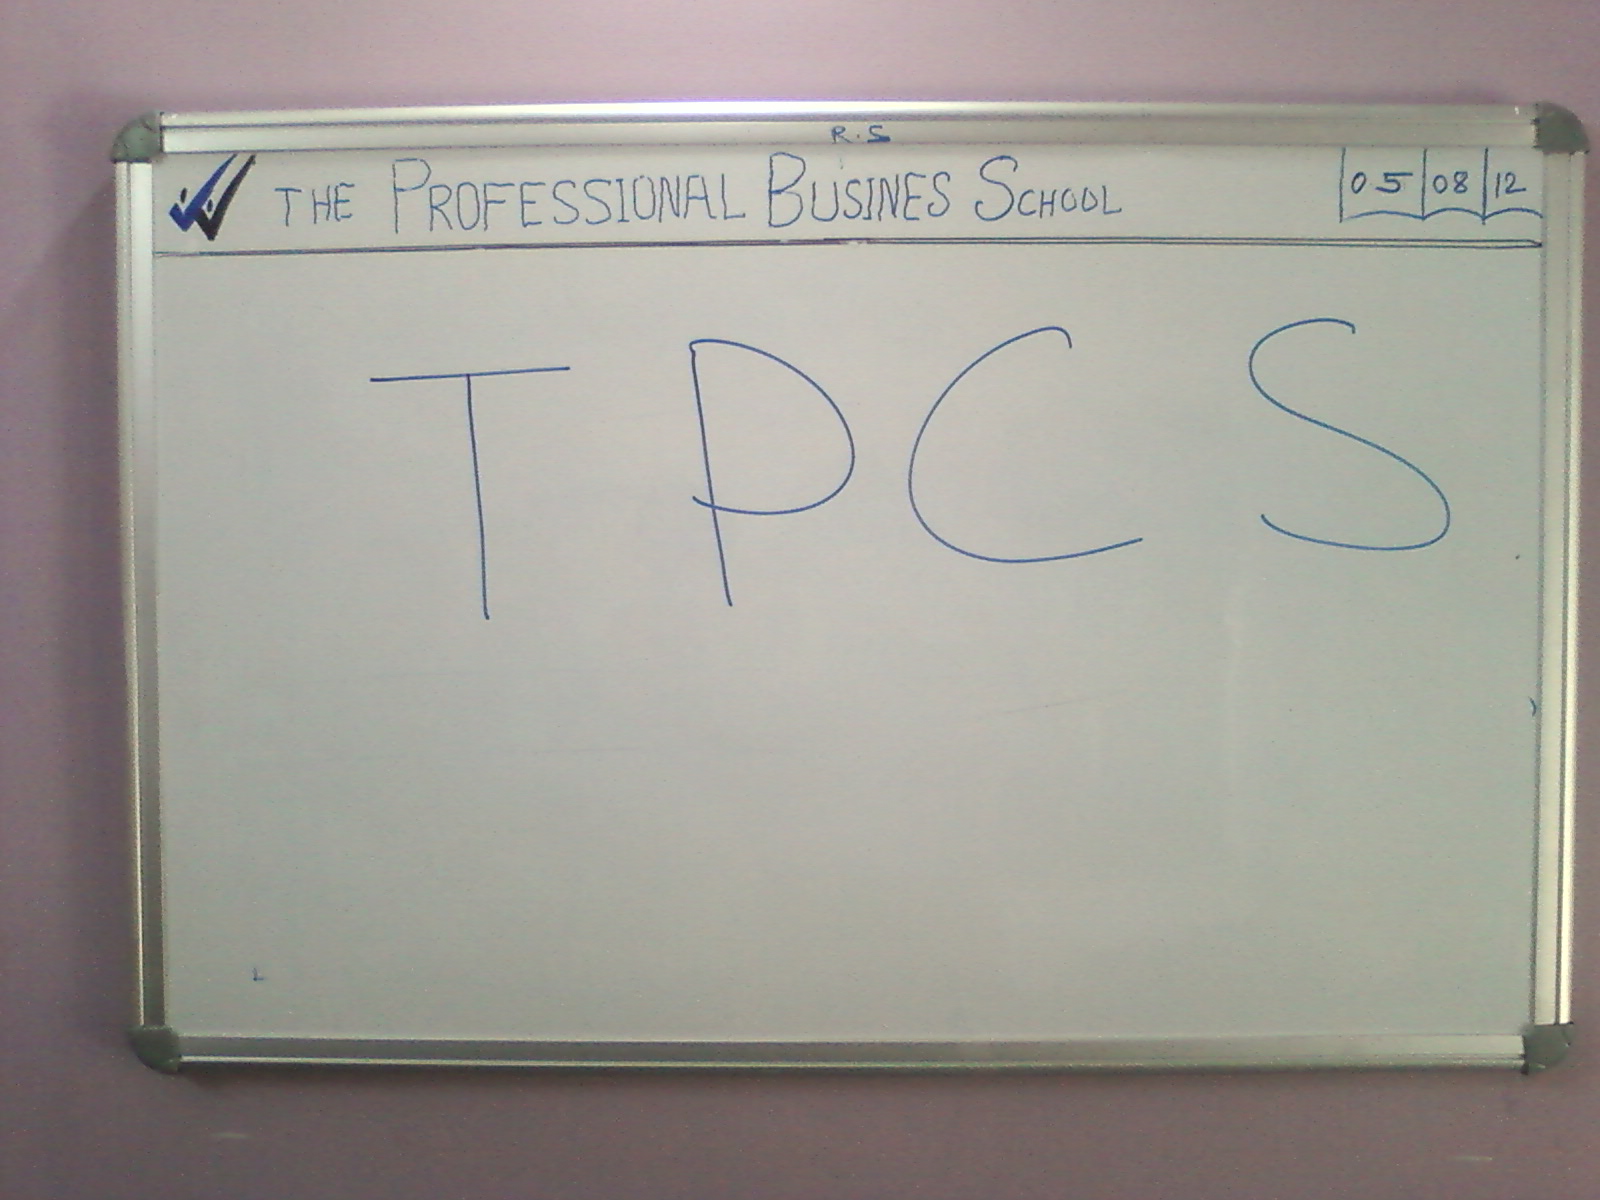 R.S
THE PROFESSIONAL BUSINES SCHOOL 05 08 12
TPCS